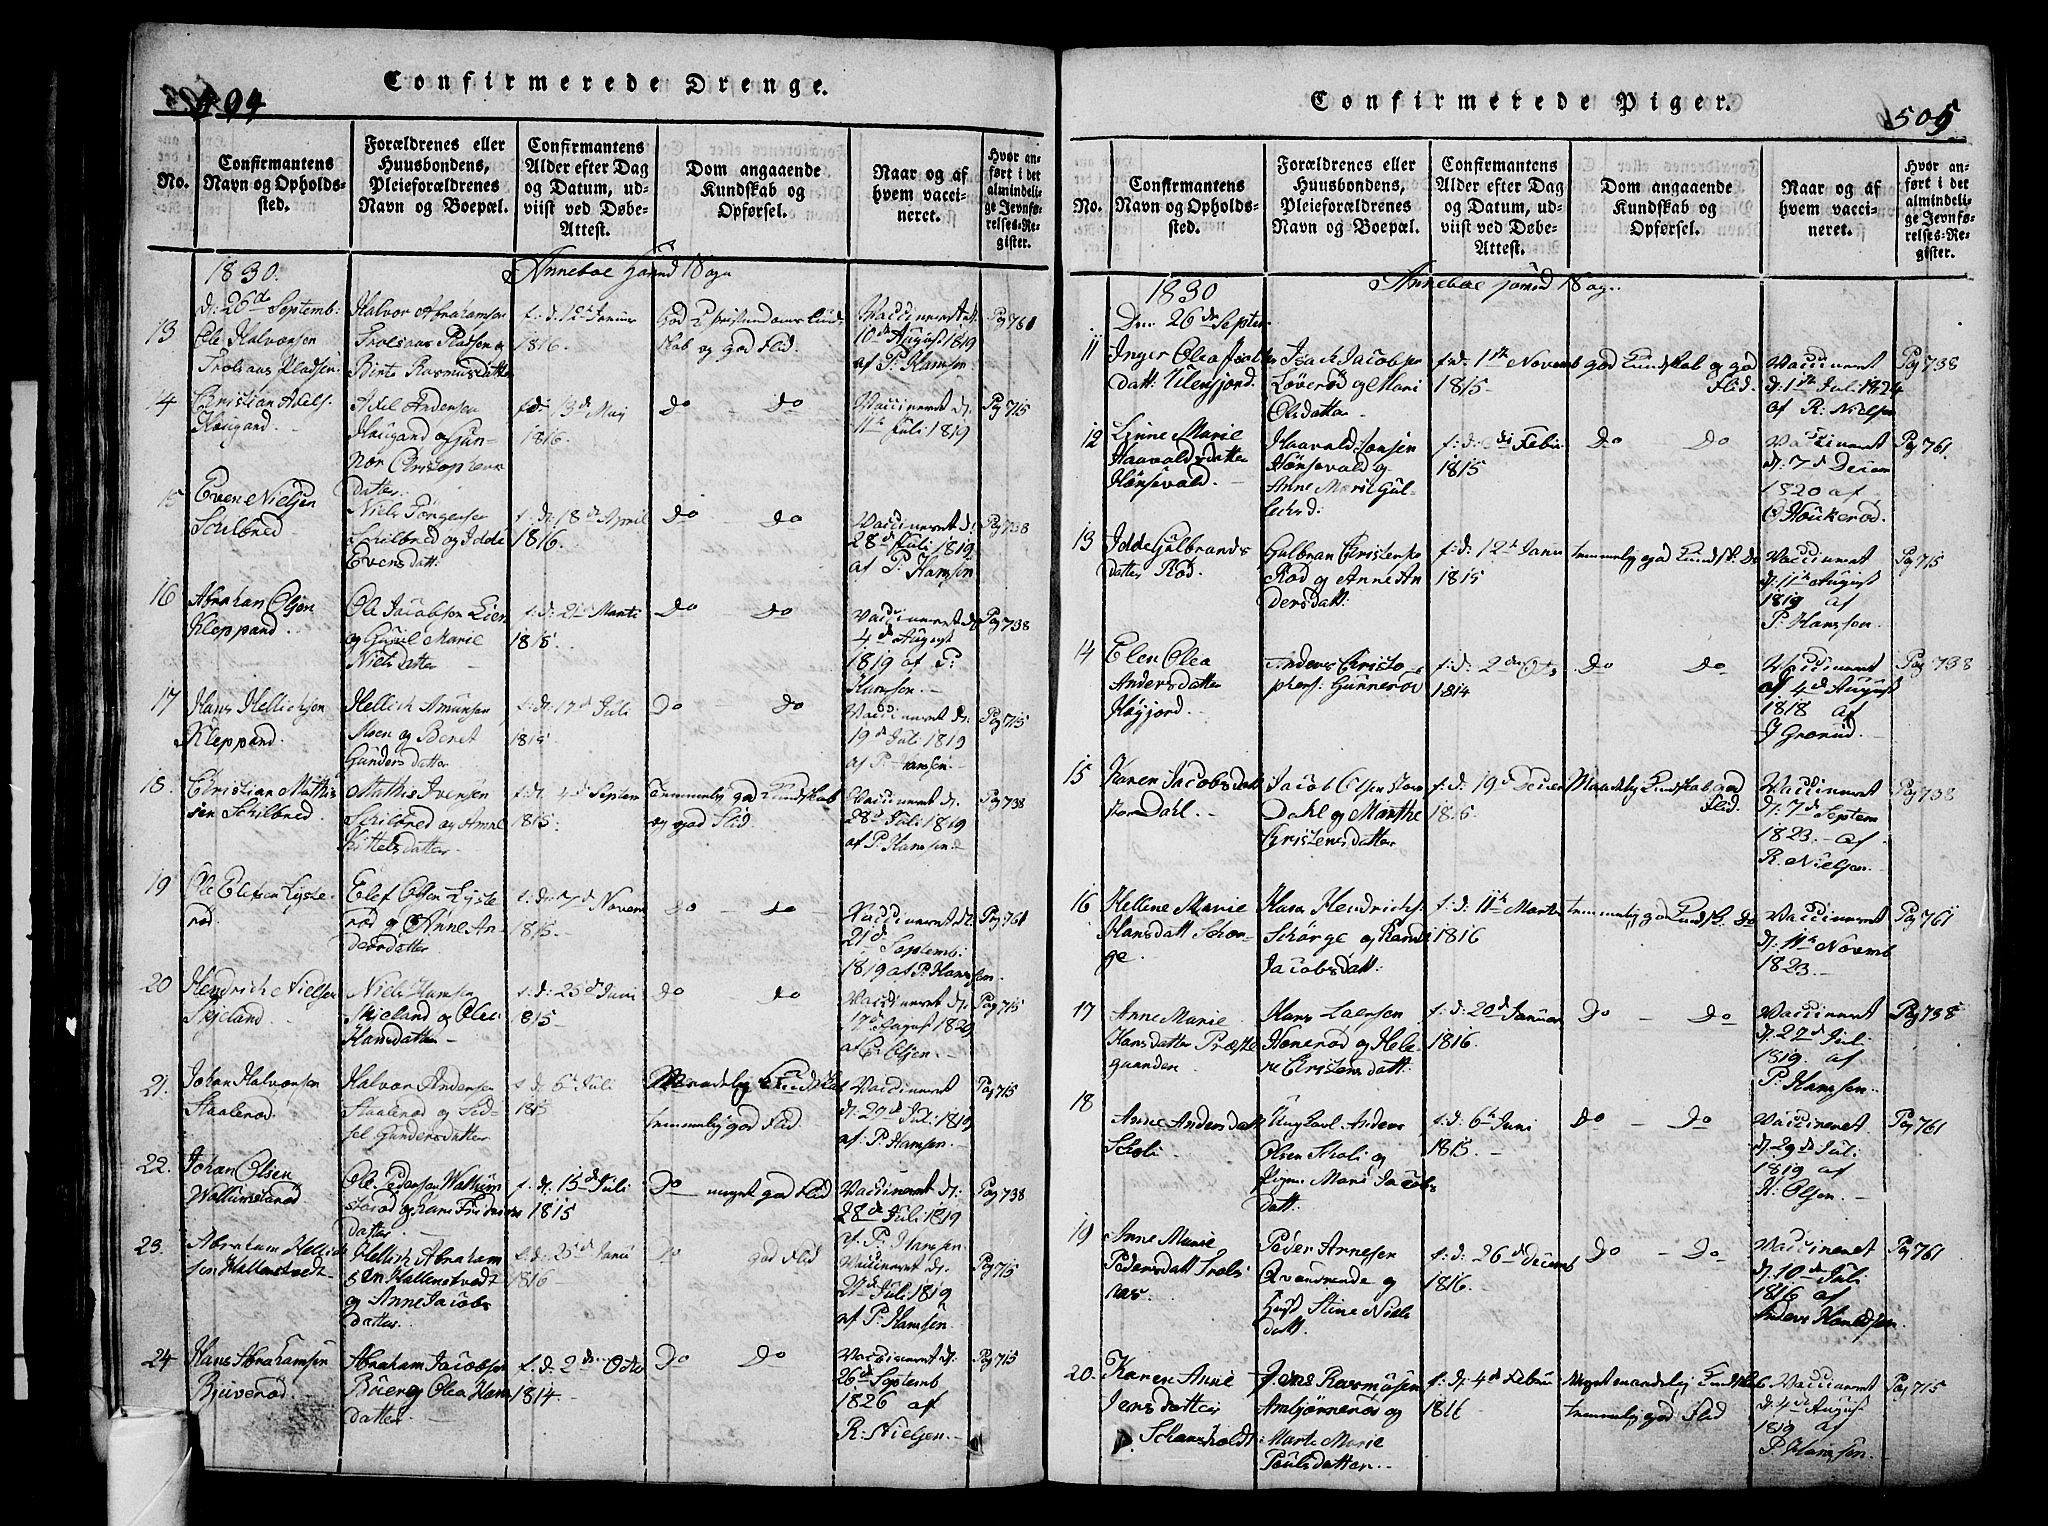 Confirmerede Drenge.
No.
Confirmantens
Navn og Opholds-
sted.
Forældrenes eller
Huusbondens,
Pleieforældrenes
Navn og Boepæl.
Confirmantens
Alder efter Dag
og Datum, ud-
viist ved Døbe-
Attest.
Dom angaaende
Kundskab og
Opførsel.
Naar og af
hvem vacci-
neret.
Hvor an-
ført i det
almindeli-
ge Jevnfø-
relses-Re-
gister.
1830.
d: 26de Septemb:
13
Ole Halvorsen
Halvor Abrahamsen
Birte Rasmusdatter
f. d: 12te Januar
1816.
Vaccineret d:
10de August 1819
af P. Hansen
Pag 761
14
Christian Axels.
Haugand.
Axel Andersen
Haugand og Gun-
nor Christophers
datter.
f. d: 13de Maj
1816.
Do Do
Vaccineret d:
11te Juli 1819
Pag 715
15
Even Nielsen
Schilbred
Niels Jørgensen
Schilbred og Idde
Evensdatt:
f. d: 18de April
1816.
Do – Do
Vaccineret d:
28de Juli 1819
af P. Hansen
Pag 738
16
Abraham Olsen
Kleppand.
Ole Jacobsen Lien
og Gunil Marie
Nielsdatter
1815
Do Do
Vaccineret d:
4de August
1819 af P.
Hansen.
Pag 738
17
Hans Hellichsen
Kleppand.
Hellich Amunsen
Moen og Beret
Gundersdatter
f. d: 17de Juli
1815
Do – Do
Vaccineret d:
19de Juli 1819
af P. Hansen.
Pag 715
18.
Christian Mathis
sen Schilbred
Mathis Ivensen
Schilbred og Anne
Kittelsdatter
f. d: 4de Septem
1815.
temmelig god Kundskab
og god Flid.
Vaccineret d:
28de Juli 1819
af P. Hansen.
Pag 738
19
Ole Elefsen Lyste-
rød.
Elef Olsen Lyste
rød og Anne An-
dersdatter
f. d: 7de Novem
1815.
Do – Do
Vaccineret d:
21de
Septemb:
1819 af P. Hansen.
Pag 761
20
Hendrich Nielsen
Skjeland
Niels Hansen
Skjeland og Olea
Hansdatter
f. d: 25de Juni
1815
Do – Do
Vaccineret d:
17de August 1829
af C. Olsen.
Pag 715
21.
Johan Halvorsen
Staalerød.
Halvor Andersen
Staalerød og Sid-
sel Gundersdatter
f. d: 6te Juli
1815
Maadelig Kundskab
temmelig god Flid
Vaccineret
d: 29de Juli 1819
af P. Hansen.
Pag 715
22.
Johan Olsen
Wallumsrød
Ole Pedersen Wallum
datter.
f. d: 15de Juli
1815
Do meget god Flid
Vaccineret d:
28de Juli 1819
af P. Hansen
Pag 738
23.
Abraham Hellich
sen Hallenstvedt
Hellich Abraham
sen Hallenstvedt
og Anne Jacobs
datter.
f. d: 25de Janu
1816
Do god Flid
Vaccineret d:
21de Juli 1819
af P. Hansen.
Pag 715
24
Hans Abrahamsen
Bjuverød.
Abraham Jacobsen
Olea Hans
datter.
f. d: 2den Octo
1814
Do Do
Vaccineret d:
26de Septemb
1826 af
R. Nielsen.
Pag 715
Confirmerede Piger.
505
No.
Confirmantens
Navn og Opholds-
sted.
Forældrenes eller
Huusbondens,
Pleieforældrenes
Navn og Boepæl.
Confirmantens
Alder efter Dag
og Datum, ud-
viist ved Døbe-
Attest.
Dom angaaende
Kundskab og
Opførsel.
Naar og af
hvem vacci-
neret.
Hvor an-
ført i det
almindeli-
ge Jevnfø-
relses-Re-
gister.
1830
Den 26de Septem
11
Inger Olea Isachs
datt:
Isach Jacobsen
Løverød og Mari
Olsdatter
f. d: 1ste Novemb
1815
god Kundskab og god
Flid.
Vaccineret
d: 1ste Juli 1824
af R. Nielsen
Pag 738
12
Linne Marie
Haavaldsdatter
Hønsevald.
Haavald Hansen
Hønsevald og
Anne Marie Gul-
1815
Do – Do
Vaccineret
d: 7de Decem
1820 af
Pag 761.
13
Idde Gulbrands
datter Rød.
Gulbran Christens
Rød og Anne An
dersdatt:
f. d: 12te Janu
1815
temmelig god Kundsk. Do
Vaccineret
d: 11te August
1819 af
P. Hansen.
Pag 715
14
Elen Olea
Andersdatter
Høyjord.
Anders Christo-
phers: Gunnerød
f. d: 2den Octo
1814
Do Do
Vaccineret
d: 4de August
1818 af
J. Grorud.
Pag 738
15
Karen Jacobsdatt
Dahl.
Jacob Olsen
Dahl og Marthe
Christensdatter
f. d: 19de Decem
Maadelig Kundskab god
Flid.
Vaccineret
d: 7de Septem
1823 af
R. Nielsen.
Pag 738
16
Hellene Marie
Hansdatt Schor-
ge.
Hans Hendrichs:
Schorge og Randi
Jacobsdatt:
f. d: 11te Martz
1816
temmelig god Kundsk. Do
Vaccineret
d: 11te Novemb
1823.
Pag 761
17
Anne Marie
Hansdatter Præste
gaarden.
Hans Larsen
Honerød og Hele-
ne Christensdatt:
f. d: 20de Januar
1816.
Do – Do
Vaccineret
d: 27de Juli
1819. af
P. Hansen.
Pag 738
18
Anne Andersdatt
Skoli
Ungkarl Anders
Olsen Skoli og
Pigen Mari Jacobs
datt:
f. d: 6te Juni
1815.
Do – Do
Vaccineret
d: 29de Juli
1819 af
H. Olsen.
Pag 761
19
Anne Marie
Pedersdatt Trols
aas.
Peder Arnesen
Qvendrende og
Stine Niels
datt.
f. d: 26de Decemb
1816.
Do – Do
Vaccineret
d: 10de Juli
1816 af
Pag 761
20.
Karen Anne
Jensdatter
Jens Rasmusen
Ambjørnerød og
Marte Marie
Poulsdatter.
f. d: 4de Febru
1816
Meget maadelig Kundskab
temmelig god Flid
Vaccineret
d: 4de August
1819 af
P. Hansen.
Pag 715